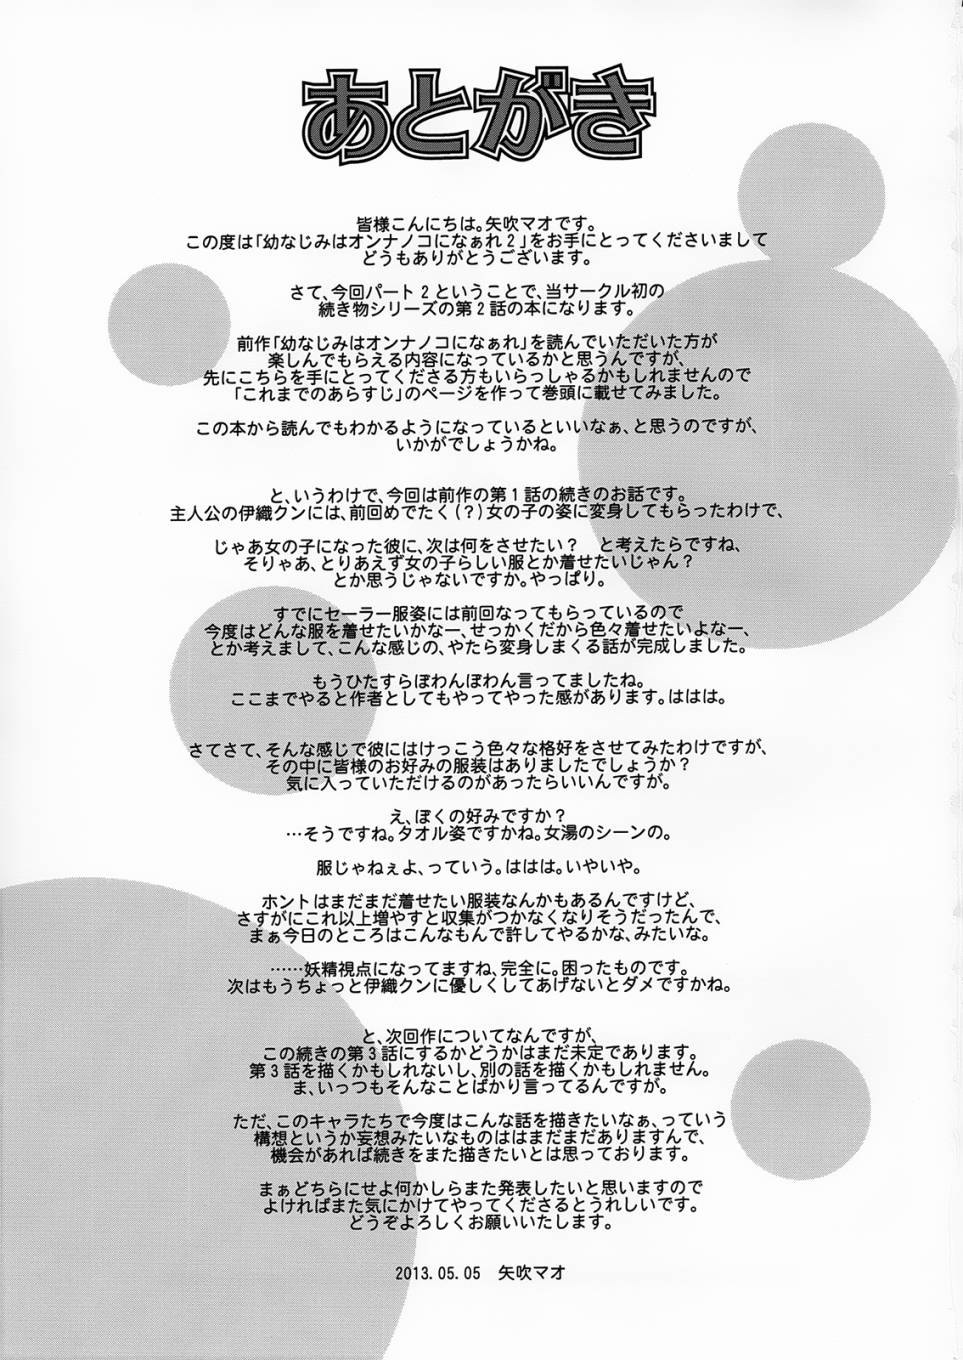 あとがき
皆様こんにちは。矢吹マオです。
この度は「幼なじみはオンナノコになぁれ2」をお手にとってくださいまして
どうもありがとうございます。
さて、今回パート2ということで、当サークル初の
続き物シリーズの第2話の本になります。
前作「幼なじみはオンナノコになぁれ」を読んでいただいた方が
楽しんでもらえる内容になっているかと思うんですが、
先にこちらを手にとってくださる方もいらっしゃるかもしれませんので
「これまでのあらすじ」のページを作って巻頭に載せてみました。
この本から読んでもわかるようになっているといいなぁ、と思うのですが、
いかがでしょうかね。
と、いうわけで、今回は前作の第1話の続きのお話です。
主人公の伊織クンには、前回めでたく(?)女の子の姿に変身してもらったわけで、
じゃあ女の子になった彼に、次は何をさせたい?　と考えたらですね、
そりゃあ、とりあえず女の子らしい服とか着せたいじゃん?
とか思うじゃないですか。やっぱり。
すでにセーラー服姿には前回なってもらっているので
今度はどんな服を着せたいかなー、せっかくだから色々着せたいよなー、
とか考えまして、こんな感じの、やたら変身しまくる話が完成しました。
もうひたすらぽわんぽわん言ってましたね。
ここまでやると作者としてもやってやった感があります。ははは。
さてさて、そんな感じで彼にはけっこう色々な格好をさせてみたわけですが、
その中に皆様のお好みの服装はありましたでしょうか?
気に入っていただけるのがあったらいいんですが。
え、ぼくの好みですか?
…そうですね。タオル姿ですかね。女湯のシーンの。
服じゃねぇよ、っていう。ははは。いやいや。
ホントはまだまだ着せたい服装なんかもあるんですけど、
さすがにこれ以上増やすと収集がつかなくなりそうだったんで、
まぁ今日のところはこんなもんで許してやるかな、みたいな。
……妖精視点になってますね、完全に。困ったものです。
次はもうちょっと伊織クンに優しくしてあげないとダメですかね。
と、次回作についてなんですが、
この続きの第3話にするかどうかはまだ未定であります。
第3話を描くかもしれないし、別の話を描くかもしれません。
ま、いっつもそんなことばかり言ってるんですが。
ただ、このキャラたちで今度はこんな話を描きたいなぁ、っていう
構想というか妄想みたいなものははまだまだありますんで、
機会があれば続きをまた描きたいとは思っております。
まぁどちらにせよ何かしらまた発表したいと思いますので
よければまた気にかけてやってくださるとうれしいです。
どうぞよろしくお願いいたします。
2013.05.05　矢吹マオ